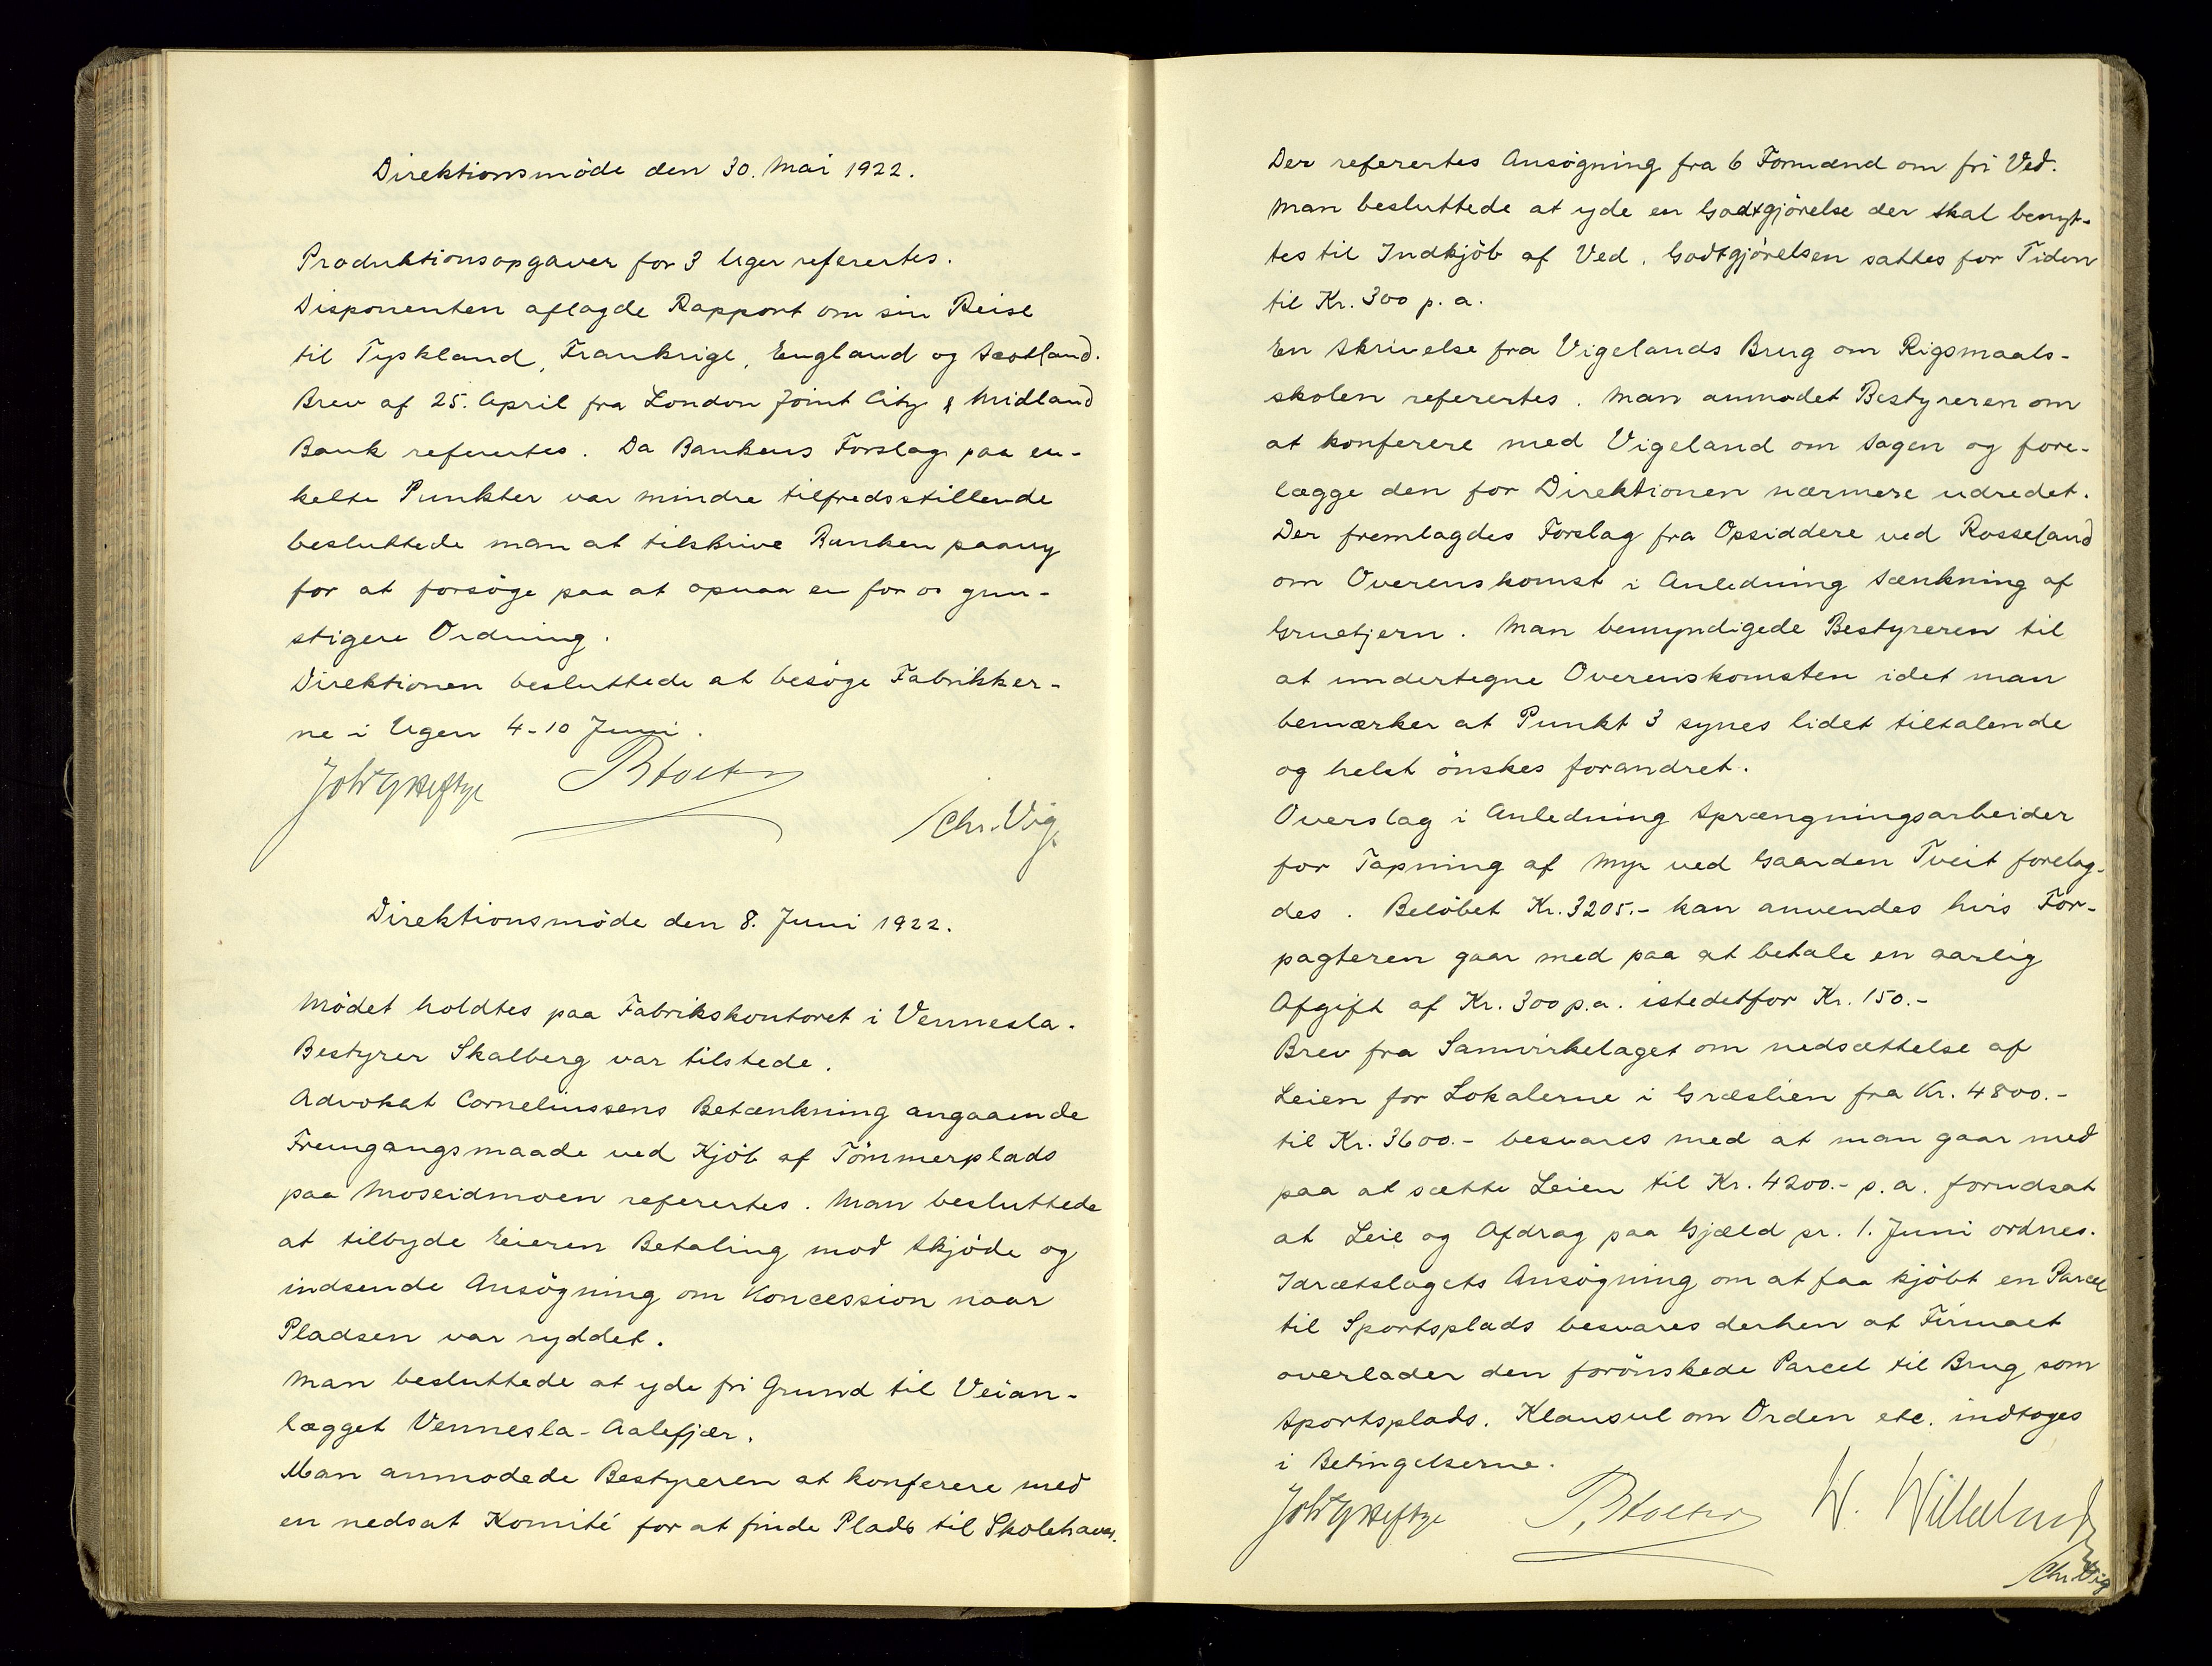 Direktionsmöde den 30. Mai 1922.
Produktionsopgaver for 3 Uger refereertes.
Disponenten aflagde Rapport om sin Reise
til Tyskland, Frankrige, England og Scotland.
Brev af 25. April fra London Joint City & Midland
Bank referertes. Da Bankens Forslag paa en-
kelte Punkter var mindre tilfredsstillende
besluttede man at tilskrive Banken paany
for at forsöge paa at opnaa en for os gun-
stigere Ordning.
Direktionen besluttede at besöge Fabrikker-
ne i Ugen 4-10 Juni.
Chr. Vig
Direktionsmöde den 8. Juni 1922.
Mödet holdtes paa Fabrikskontoret i Vennesla.
Bestyrer Skalberg var tilstede.
Advokat Corneliussens Betænkning angaaende
Fremgangsmaade ved Kjöb af Tömmerplads
paa Moseidmoen referertes. Man besluttede
at tilbyde Eieren Betaling mod Skjöde og
indsende Ansögning om Koncession naar
Pladsen var ryddet.
Man besluttede at yde fri Grund til Veian-
lægget Vennesla-Aalefjær.
Man anmodede Bestyreren at konferere med
en nedsat Komité for at finde Plads til Skolehaver.
Der referertes Ansögning fra 6 Formænd om fri Ved.
Man besluttede at yde en Godtgjörelse der skal benyt-
tes til Indkjöb af Ved. Godtgjörelsen sattes for Tiden
til Kr. 300 p. a.
En Skrivelse fra Vigelands Brug om Rigsmaals-
skolen referertes. Man anmodet Bestyreren om
at konferere med Vigeland om Sagen og fore-
lægge den for Direktionen nærmere udredet.
Der fremlagdes Forslag fra Opsiddere ved Rosseland
om Overenskomst i Anledning Sænkning af
Gruetjern. Man bemyndigede Bestyreren til
at undertegne Overenskomsten idet man
bemærker at Punkt 3 synes lidet tiltalende
og helst önskes forandret.
Overslag i Anledning Sprængningsarbeider
for Tapning af Myr ved Gaarden Tveit forelag-
des. Belöbet Kr. 3205.- kan anvendes hvis For-
pagteren gaar med paa at betale en aarlig
Afgift af Kr. 300 p.a. istedetfor Kr. 150.-
Brev fra Samvirkelaget om nedsættelse af
Leien for Lokalerne i Græslien fra Kr. 4800.-
til Kr. 3600.- besvares med at man gaar med
paa at sætte Leien til Kr. 4200.- p.a. forudsat
at Leie og Afdrag paa Gjæld pr. 1. Juni ordnes.
Idrætslagets Ansögning om at faa kjöbt en Parcel
til Sportsplads besvares derhen at Firmaet
overlader den forönskede Parcel til Brug som
Sportsplads. Klausul om Orden etc. indtages
i Betingelserne.
Chr. Vig